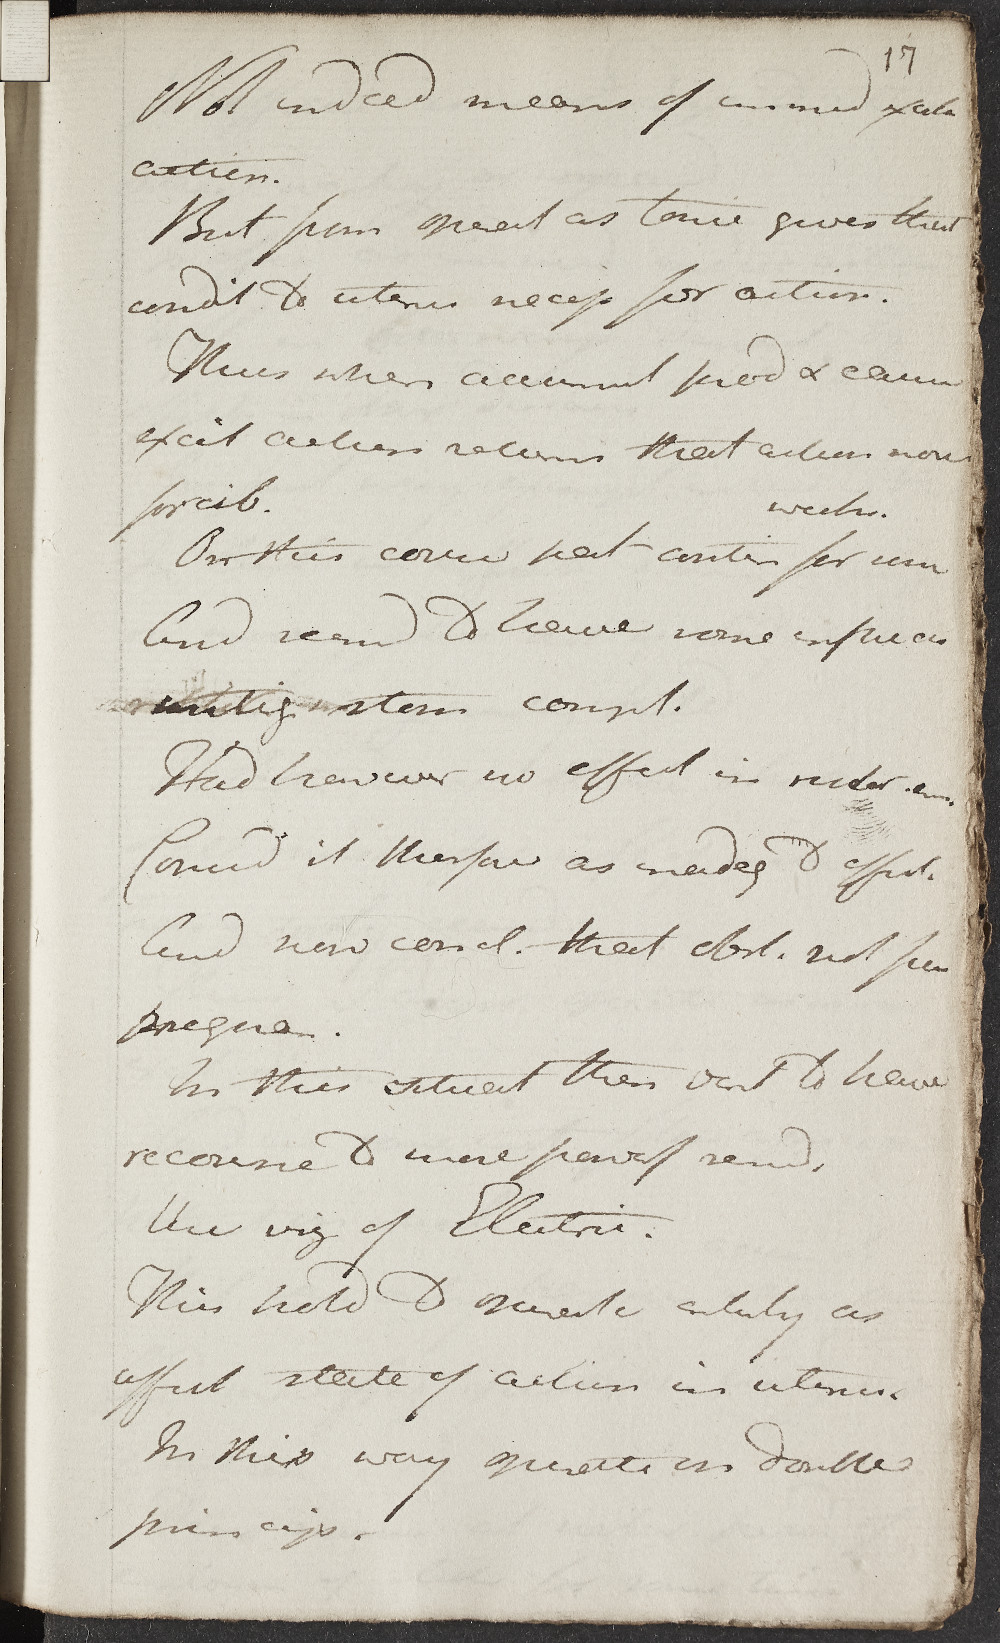 17
Not indeed means of immed excit
action.
But from operat as tonic gives that
condit to uterus necess for action.
Thus when accumul prod & caus
excit action returns that action more
forcib.
weeks.
On this course pat contin for
And seemd to have some influen
mitig stom compl.
Had however no effect in
Considd it therefore as inadeq to effect.
And now concl. that obst. not from
pregnan.
In this situat then vent to have
recourse to more powerf remd.
Use viz of Electric.
This held to operate as
affect state of action in uterus.
In this way operate on double
princip.